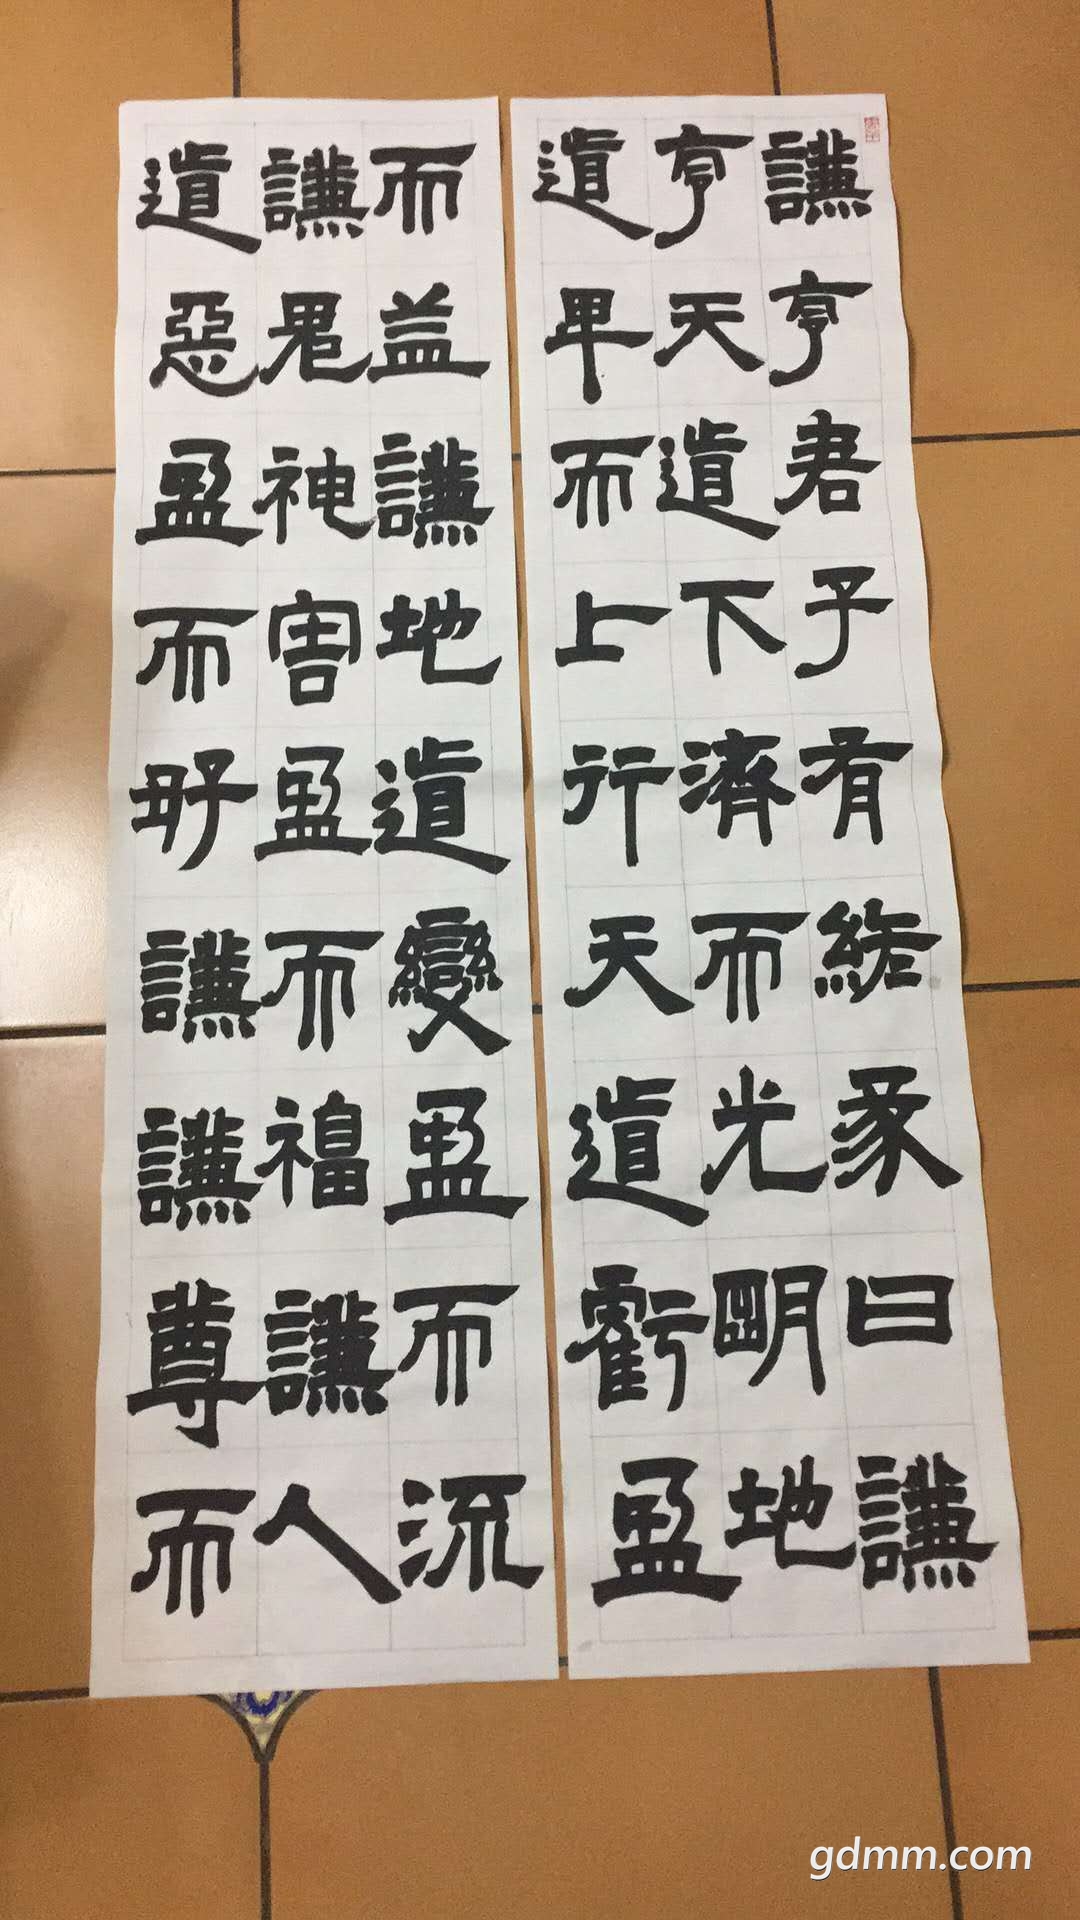 謙亨君子有終彖曰謙
亨天道下濟而光明地
道卑而上行天道虧盈
而益謙地道變盈而流
謙鬼神害盈而福謙人
道惡盈而好謙謙尊而
gdmm.com